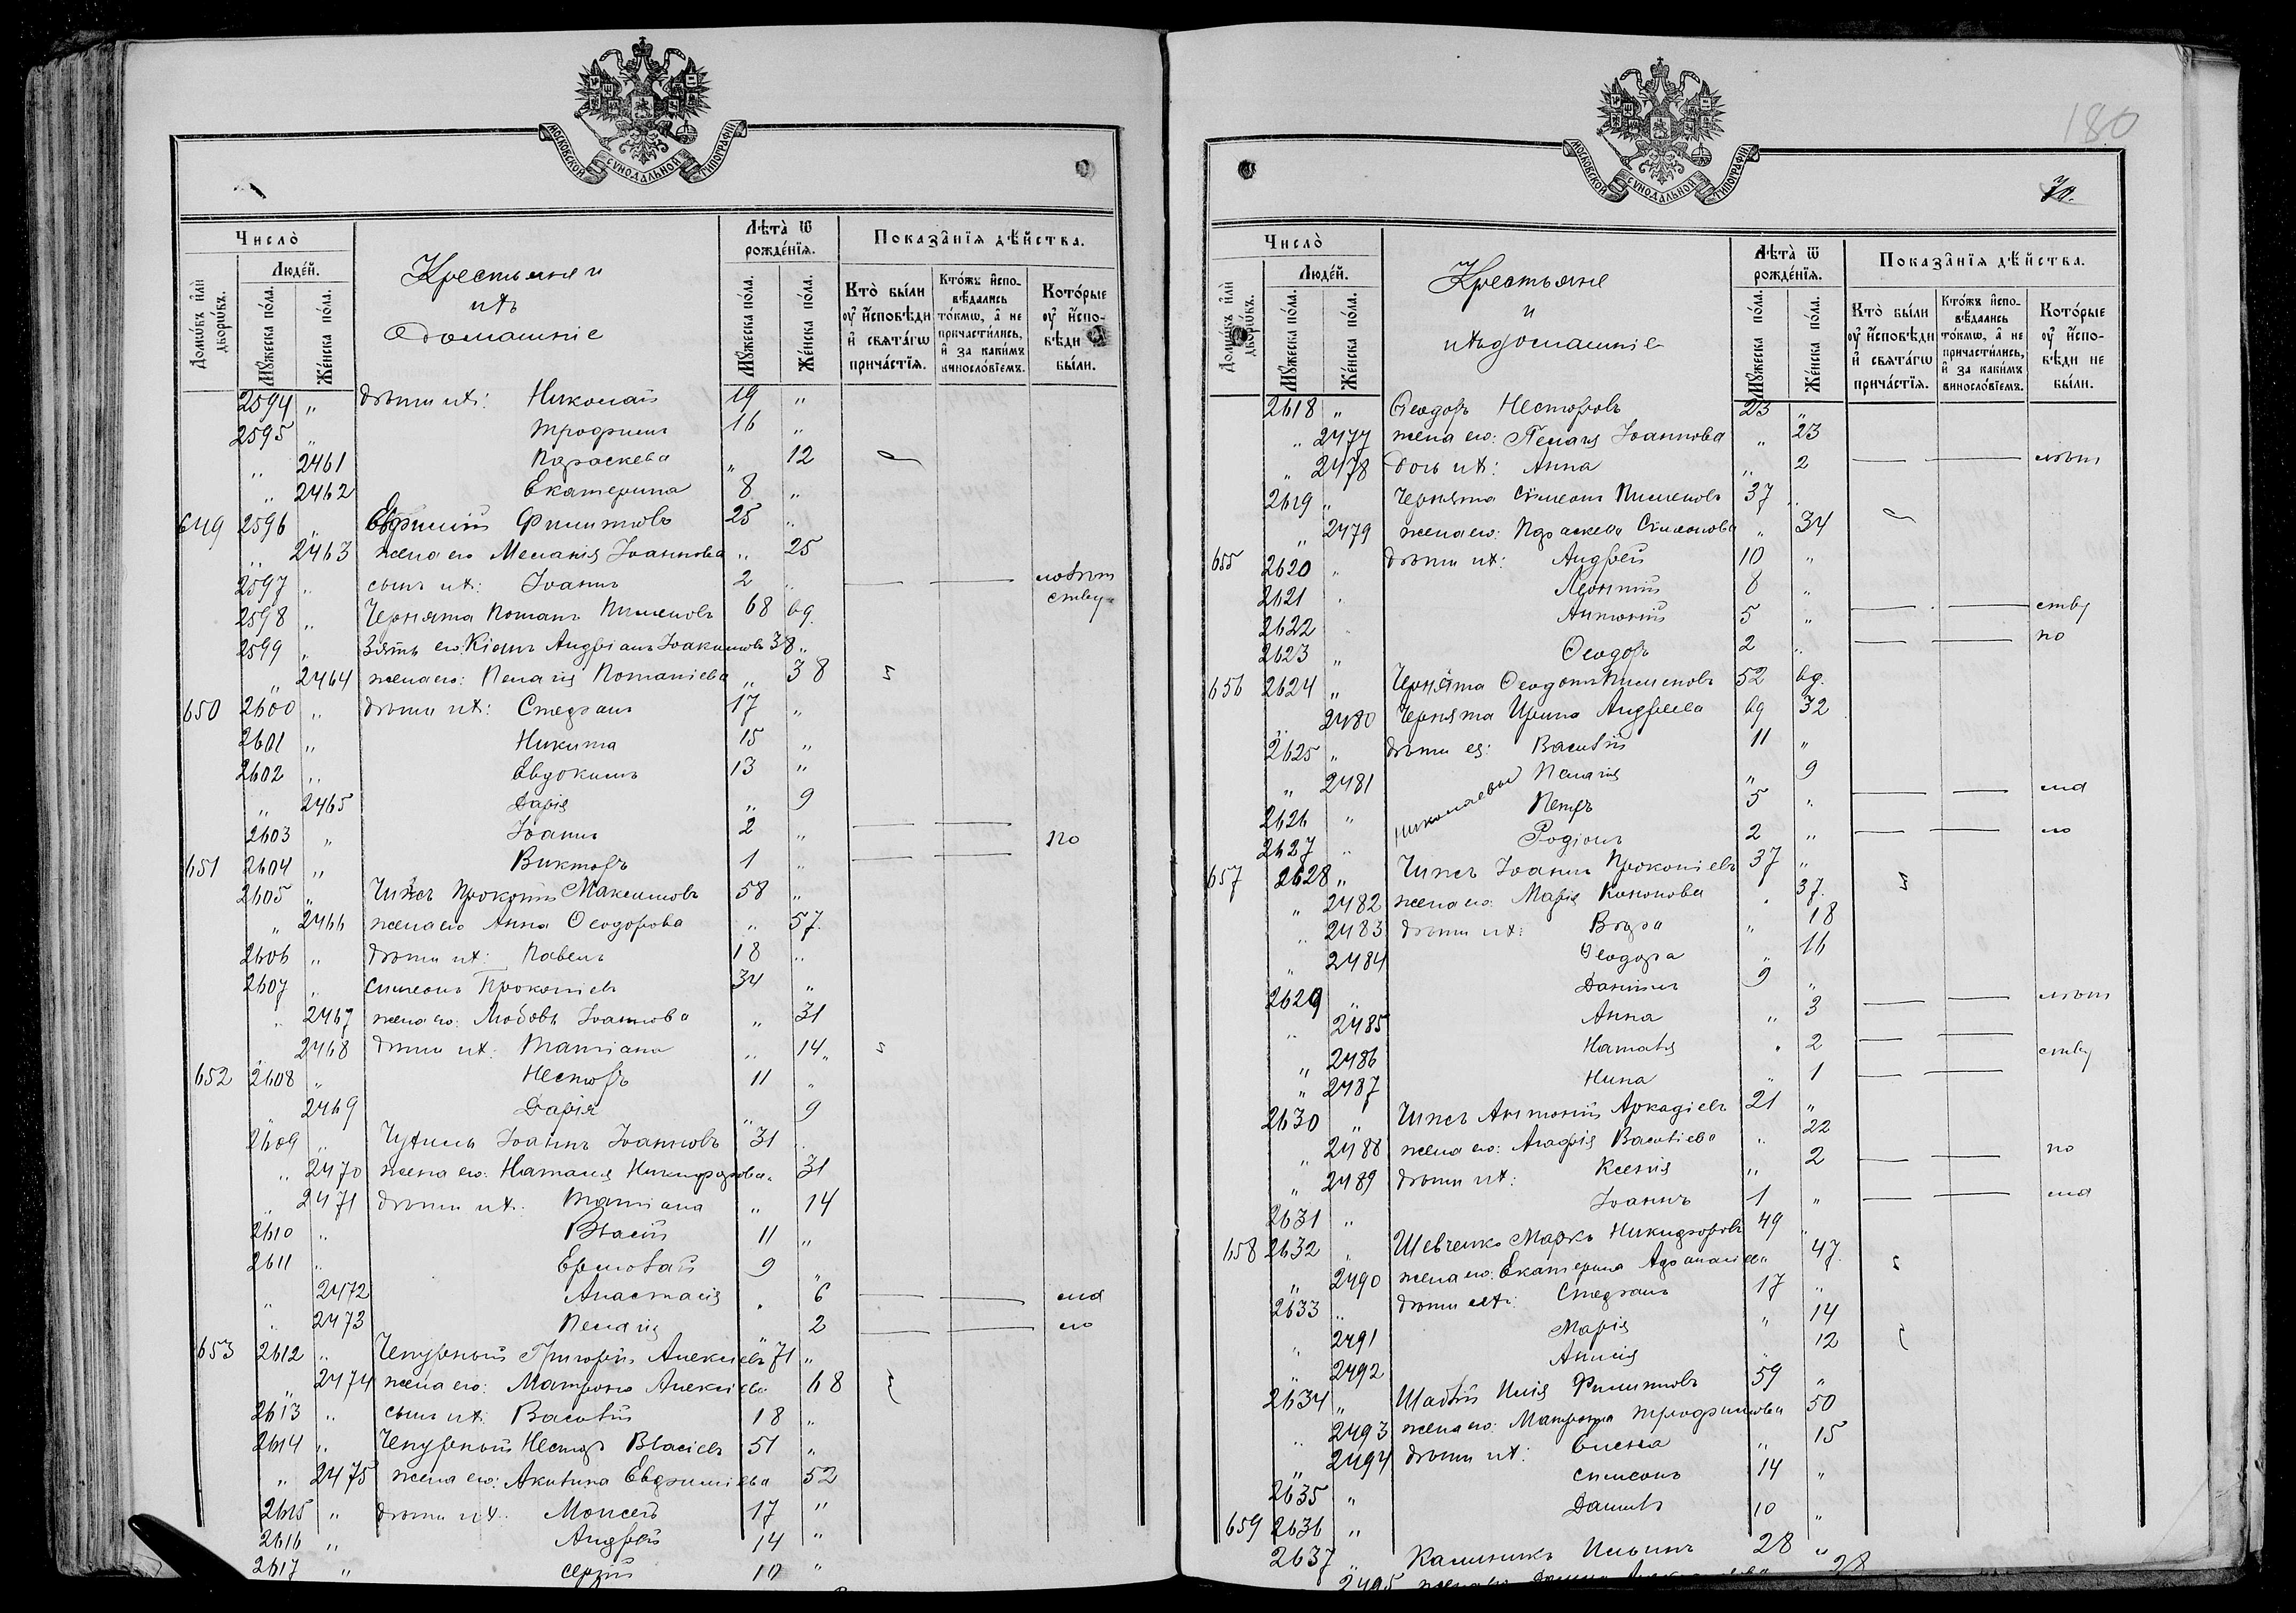 МОСКОВСКОЙ СУНОДАЛЬНОЙ ТИПОГРАФІИ
Число̀
Людей.
Домѡвъ и҆лѝ дворѡвъ.
Мꙋжеска по́ла.
Же́нска по́ла.
Крестьяне и
ихъ
домашніе
Лѣта̀ ѿ рожде́нїѧ.
Мꙋжеска по́ла.
Же́нска по́ла.
Показа̑нїѧ дѣ́йства.
Кто̀ бы́ли оу҆ и҆сповѣ́ди и҆ свѧта́гѡ прича́стїѧ.
Кто́жъ и҆сповѣ́дались то́кмѡ, а҆ не причасти́лись, и҆ за каки́мъ винословїемъ.
Кото́рые оу҆ и҆споѣ́ди не бы́ли.
2594 „ дѣти ихъ: Николай 19 „
2595 „ Трофимъ 16 „
„ 2461 Параскева „ 12
„ 2462 Екатерина 8 „
649 2596 „ Евфимій Филипповъ 25 „
„ 2463 жена его Меланія Іоаннова „ 25
2597 „ сынъ ихъ: Іоаннъ 2 „ — —
2598 „ Черията Потапъ Пименовъ 68 вд.
2599 „ Зять его: Кіянъ Андріанъ Іоакимовъ 38 „
„ 2464 жена его: Пелагія Потапіева „ 38
650 2600 „ дѣти ихъ: Стефанъ 17 „
2601 „ Никита 15 „
2602 „ Евдокимъ 13 „
„ 2465 Дарія „ 9
2603 „ Іоаннъ 2 „ — — по
651 2604 „ Викторъ 1 „ — —
2605 „ Чижъ Прокопій Максимовъ 58 „
„ 2466 жена его Анна Ѳеодорова „ 57.
2606 „ дѣти ихъ: Павелъ 18 „
2607 „ Симеонъ Прокопіевъ 34 „
„ 2467 жена его: Любовь Іоаннова „ 31
„ 2468 дѣти ихъ: Татіана „ 14 „
652 2608 „ Несторъ 11 „
„ 2469 Дарія „ 9
2609 „ Іоаннъ Іоанновъ 31 „
„ 2470 жена его: Наталія Никифорова „ 31
„ 2471 дѣти ихъ: Татіана „ 14
2610 „ Власій 11 „
2611 „ Ермолай 9 „
„ 2472 Анастасія „ 6 — — мла
„ 2473 Пелагія „ 2 — — ло
653 2612 „ Чепурный Григорій Алексіевъ 71 „
„ 2474 жена его: Матрона Алексіева 68
2613 „ сынъ ихъ: Василій 18 „
2614 „ Чепурный Несторъ Власіевъ 51 „
„ 2475 жена его: Акилина Евфиміева 52
2615 „ дѣти ихъ: Моисей 17 „
2616 „ Андрей 14 „
2617 „ Сергій 10 „
180
70.
МОСКОВСКОЙ СУНОДАЛЬНОЙ ТИПОГРАФІИ
Число̀
Людей.
Домѡвъ и҆лѝ дворѡвъ.
Мꙋжеска по́ла.
Же́нска по́ла.
Крестьяне
и
ихъ домашніе
Лѣта̀ ѿ рожде́нїѧ.
Мꙋжеска по́ла.
Же́нска по́ла.
Показа̑нїѧ дѣ́йства.
Кто̀ бы́ли оу҆ и҆сповѣ́ди и҆ свѧта́гѡ прича́стїѧ.
Кто́жъ и҆сповѣ́дались то́кмѡ, а҆ не причасти́лись, и҆ за каки́мъ винословїемъ.
Кото́рые оу҆ и҆споѣ́ди не бы́ли.
2618 „ Ѳеодоръ Несторовъ 23 „
„ 2477 жена его: Пелагія Іоаннова „ 23
„ 2478 дочь ихъ: Анна „ 2 — — лѣт
2619 „ Черията Симеонъ Пименовъ 37 „
„ 2479 жена его: Параскева Симеонова „ 34
655 2620 „ дѣти ихъ: Андрей 10 „
2621 „ Леонтій 8 „
2622 „ Антоній 5 „ — — ству
2623 „ Ѳеодоръ 2 „ — — по
656 2624 „ Черията Ѳеодотъ Пименовъ 52 вд.
„ 2480 Черията Ирина Андреева вд 32
2625 „ дѣти ея: Василій 11 „
„ 2481 Николаевы Пелагія „ 9
2626 „ Петръ 5 „ — — мла
2627 „ Родіонъ 2 „ — — ло
657 2628 „ Чижъ Іоаннъ Прокопіевъ 37 „
„ 2482 жена его: Марія Кононова „ 37.
„ 2483 дѣти ихъ: Вѣра „ 18
„ 2484 Ѳеодора „ 16
2629 „ Даніилъ 9 „
„ 2485 Анна „ 3 — — лѣт
„ 2486 Наталія „ 2 — — ству
„ 2487 Нина „ 1 — —
2630 „ Чижъ Антоній Аркадіевъ 21 „
„ 2488 жена его: Агафія Василіева „ 22
„ 2489 дѣти ихъ: Ксенія „ 2 — — по
2631 „ Іоаннъ 1 „ — — мла
658 2632 „ Шевченко Маркъ Никифоровъ 49 „
„ 2490 жена его: Екатерина Аѳанасіева 47.
2633 „ дѣти ихъ: Стефанъ 17 „
„ 2491 Марія „ 14
„ 2492 Анисія „ 12
2634 „ Шаблій Илія Филипповъ 59 „
„ 2493 жена его: Матрона Трофимова 50
„ 2494 дѣти ихъ: Елена „ 15
2635 „ Симеонъ 14 „
659 2636 „ Даніилъ 10 „
2637 „ Калинникъ Ильинъ 28 „
2495 жена его 28